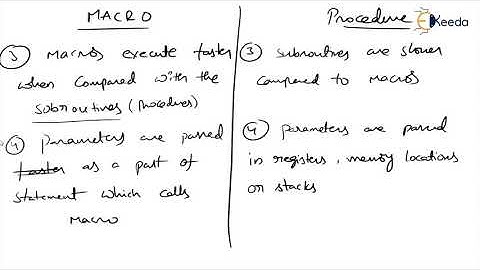 MACRO
③ Macros execute faster
when compared with the
subroutines (procedures)
④ parameters are passed
faster as a part of
statement which calls
Macro
Procedure
Keeda
③ subroutines are slower
compared to Macros
④ parameters are passed
in registers, memory locations
or stacks